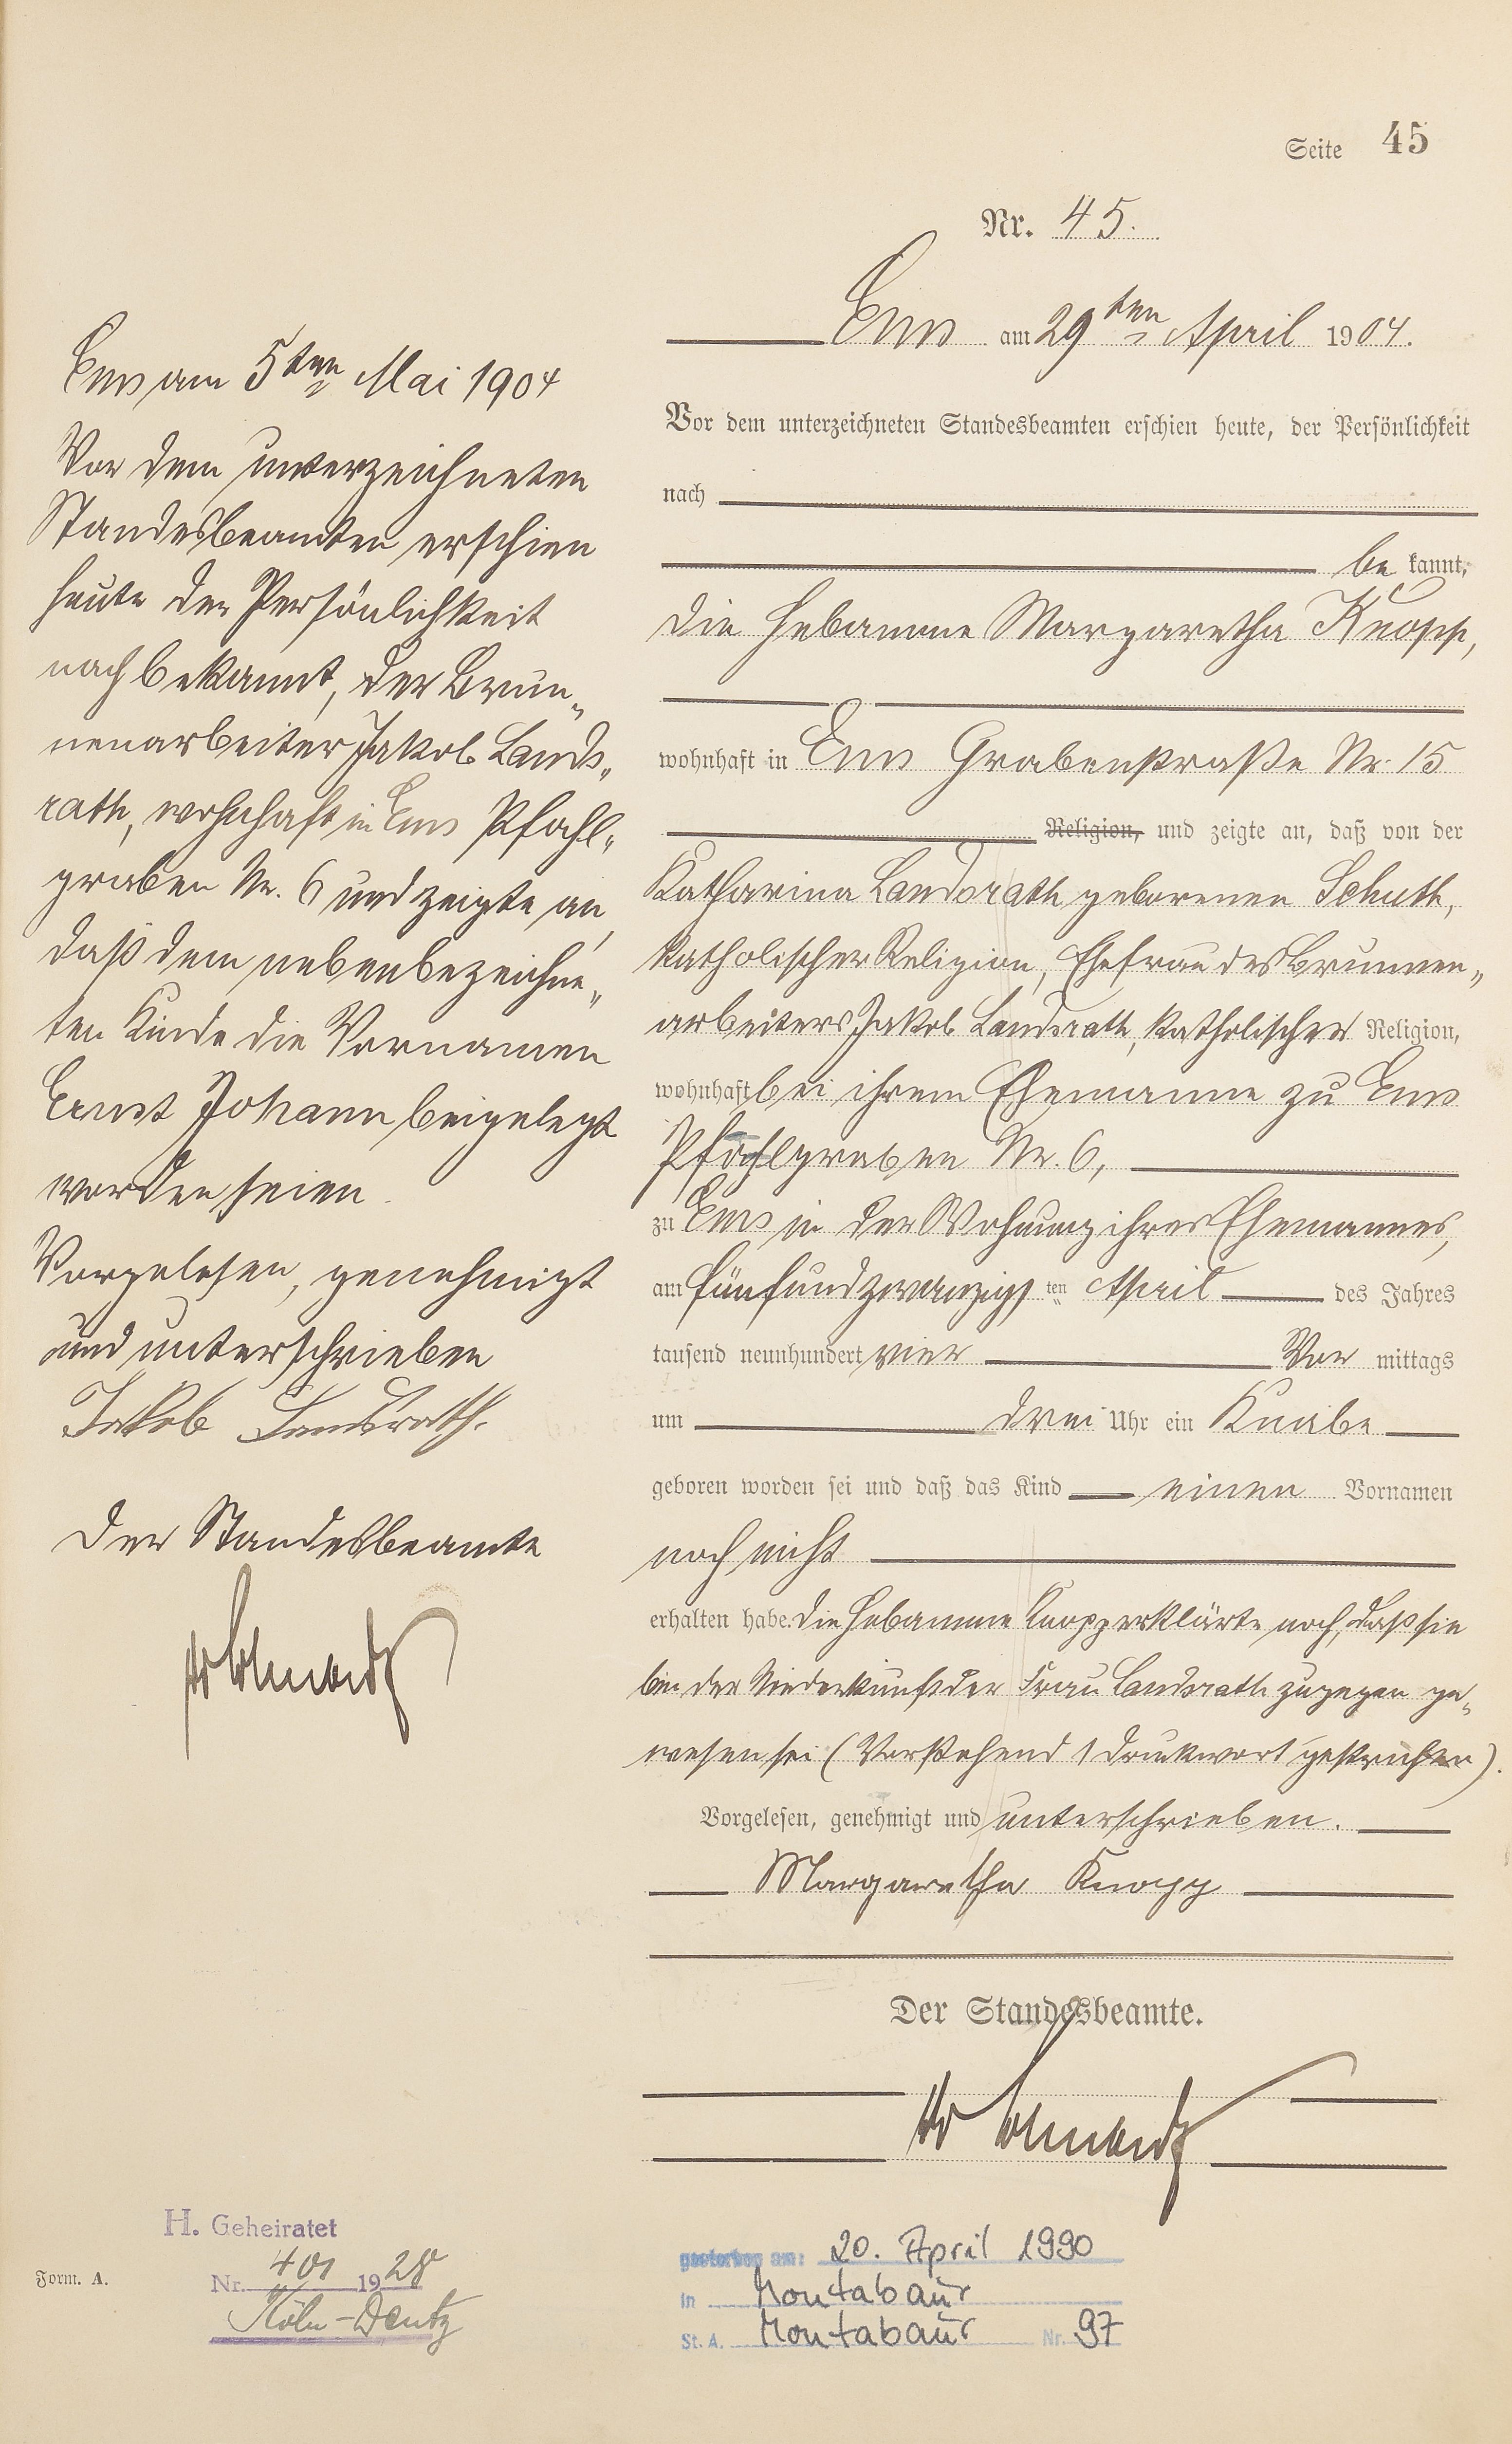 Seite 45
Nr. 45.
Ems am 29ten April 1904.
Vor dem unterzeichneten Standesbeamten erschien heute, der Persönlichkeit
nach
be kannt,
die Hebamme Margaretha Knopp,
wohnhaft in Ems Grabenstraße Nr. 15
Religion, und zeigte an, daß von der
Katharina Landsrath geborenen Schuth,
katholischer Religion, Ehefrau des Brunnen„
arbeiters Jakob Landsrath, katholischer Religion,
wohnhaft bei ihrem Ehemanne zu Ems
Pfahlgraben Nr. 6,
zu Ems in der Wohnung ihres Ehemannes,
am fünfundzwanzig ten April des Jahres
tausend neunhundert vier Vor mittags
um drei Uhr ein Knabe
geboren worden sei und daß das Kind einen Vornamen
noch nicht
erhalten habe. Die Hebamme Knopp erklärte noch, daß sie
bei der Niederkunft der Frau Landsrath zugegen ge„
wesen sei (Vorstehend 1 Druckwort gestrichen).
Vorgelesen, genehmigt und unterschrieben.
Margaretha Knopp
Der Standesbeamte.
Ems am 5ten Mai 1904
Vor dem unterzeichneten
Standesbeamten erschien
heute der Persönlichkeit
nach bekannt, der Brun„
nenarbeiter Jakob Lands„
rath, wohnhaft in Ems Pfahl„
graben Nr. 6 und zeigte an,
daß dem nebenbezeichne„
ten Kinde die Vornamen
Ernst Johann beigelegt
worden seien.
Vorgelesen, genehmigt
und unterschrieben
Jakob Landsrath.
Der Standesbeamte
H. Geheiratet
Nr. 401 1928
Köln-Deutz
Form. A.
gestorben am: 20. April 1990
in Montabaur
St. A. Montabaur Nr. 97